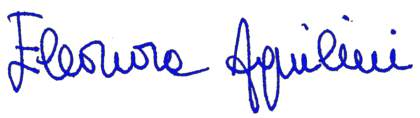 Eleonora Aquilini